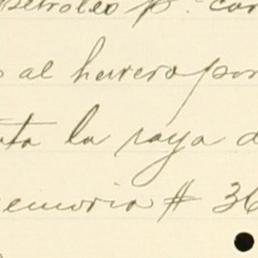 petroleo p.ª car
al herrero por
ta la raya d
emoria # 36